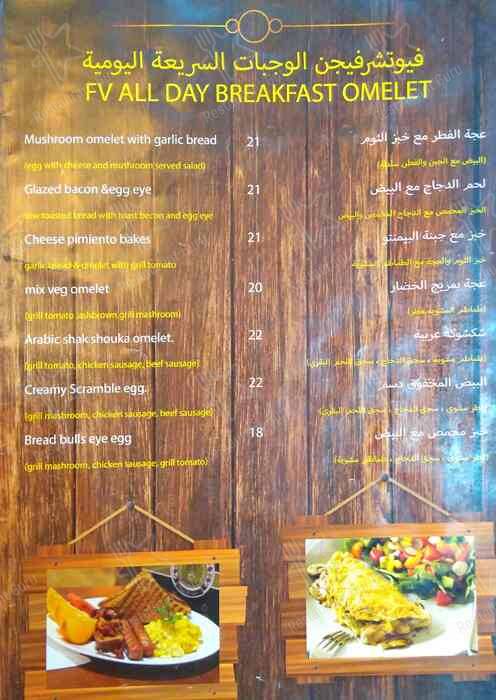 فيوتشرفيجن الوجبات السريعة اليومية
FV ALL DAY BREAKFAST OMELET
Mushroom omelet with garlic bread 21 عجة الفطر مع خبز الثوم
(egg with cheese and mushroom served salad) (البيض مع الجبن والفطر سلطة)
Glazed bacon &egg eye 21 لحم الدجاج مع البيض
toasted bread with roast becon and egg eye الخبز المحمص مع الدجاج المحمص والبيض
Cheese pimiento bakes 21 خبز مع جبنة البيمنتو
garlic bread & omelet with grill tomato خبز الثوم والعجة مع الطماطم المشوية
mix veg omelet 20 عجة بمزيج الخضار
(grill tomato ,ashbrown,grill mashroom) (طماطم المشوية فطر)
Arabic shak shouka omelet. 22 شكشوكة عربيه
(grill tomato, chicken sausage, beef sausage) (طماطم مشويه ، سجق الدجاج ، سجق اللحم البقري)
Creamy Scramble egg. 22 البيض المخفوق دسم
(grill mashroom, chicken sausage, beef sausage) (فطر مشوي ، سجق الدجاج ، سجق اللحم البقري)
Bread bulls eye egg 18 خبز محمص مع البيض
(grill mashroom, chicken sausage, grill tomato) (فطر مشوي ، سجق الدجاج ، طماطم مشوية)